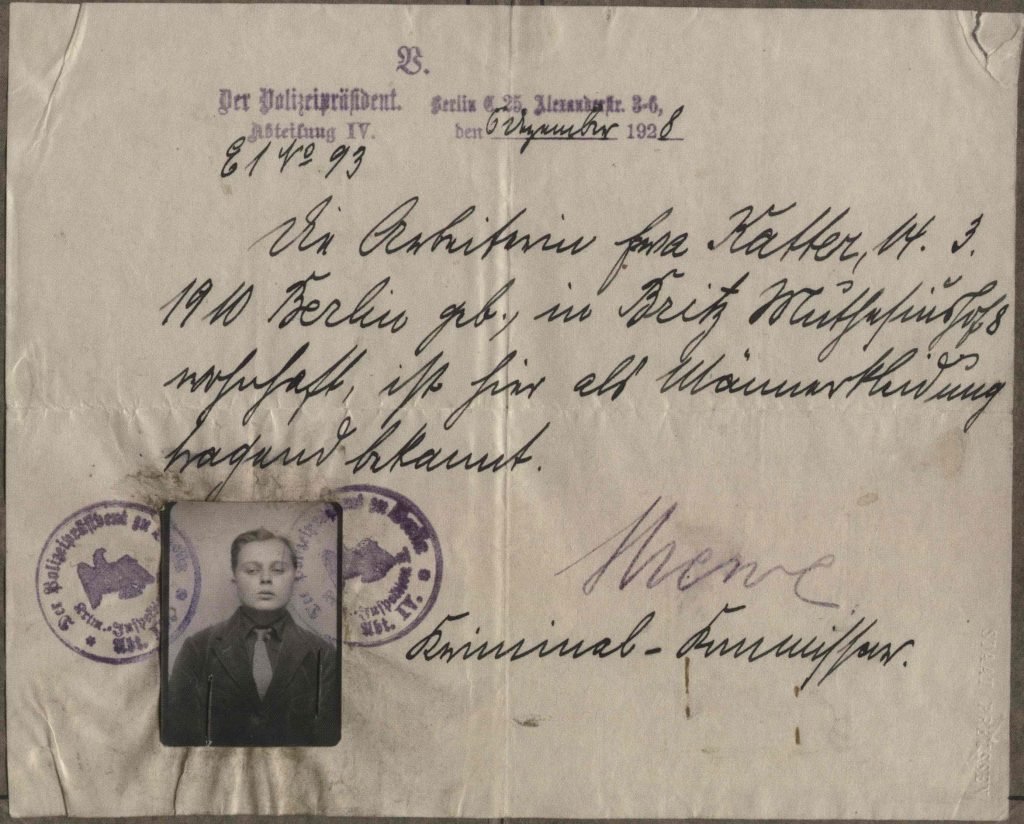 B.
Der Polizeipräsident.
Abteilung IV.
E 1 No 93
Berlin C. 25, Alexanderstr. 3-6,
den 6 Dezember 1928
Die Arbeiterin Eva Katter, 14. 3.
1910 Berlin geb., in Britz Muthesiushof 8
wohnhaft, ist hier als Männerkleidung
tragend bekannt.
Der Polizeipräsident zu
Abt.
Der Polizeipräsident zu Berlin
Krim.-Inspektion
Abt. IV.
Kriminal-Kommissar.